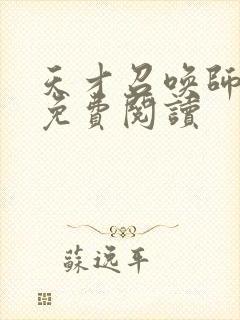 天才召喚師
免費閱讀
蘇逸平